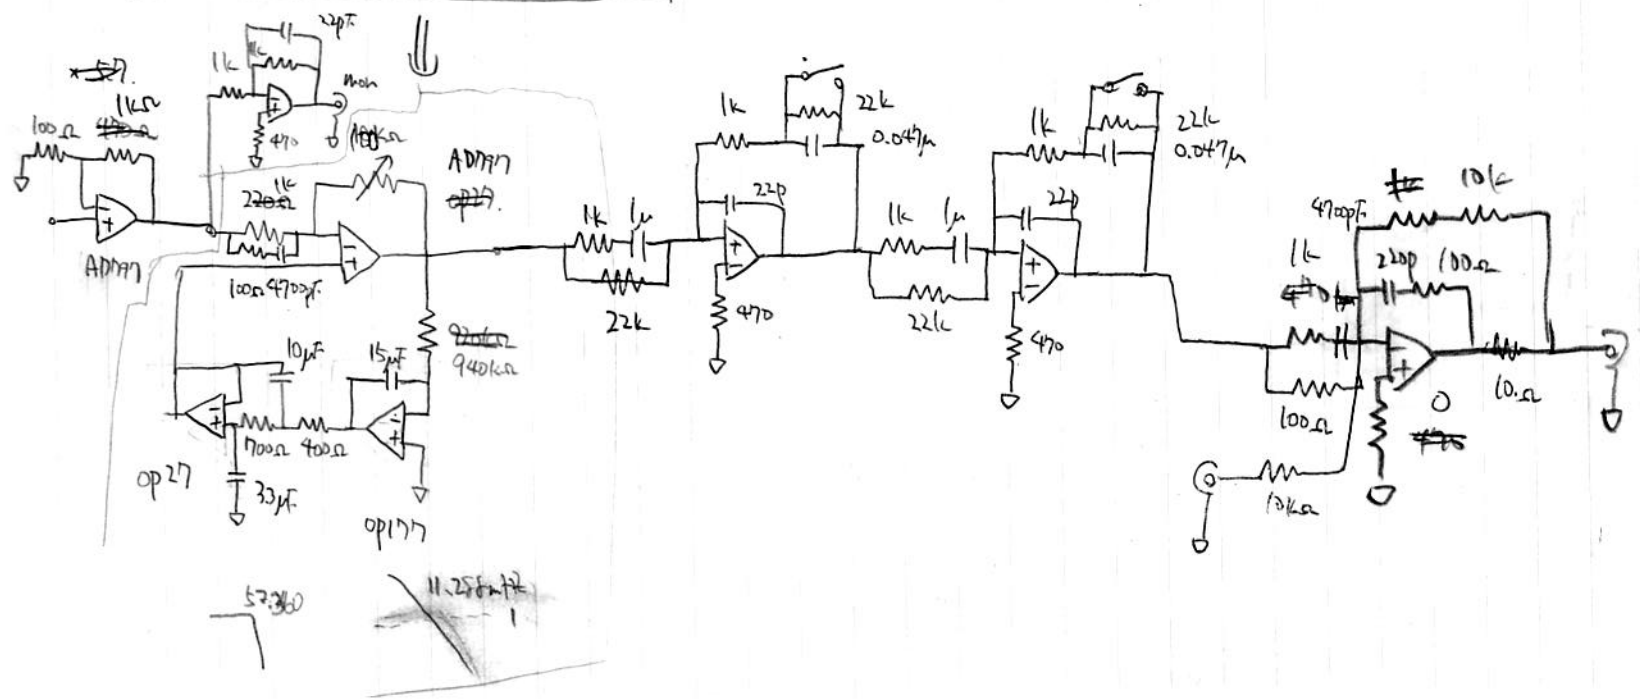 22pF
1k
1k
mon
470
1kΩ
100Ω
AD797
100kΩ
1k
220Ω
100Ω 4700pF
AD797
op27.
940kΩ
10μF
15μF
700Ω 400Ω
op27
33μF
op177
57.360
1k 1μ
22k
1k
22k
0.047μ
22p
470
1k 1μ
22k
1k
22k
0.047μ
22p
470
10k
4700pF
1k
220p 100Ω
100Ω
0
470
10Ω
10kΩ